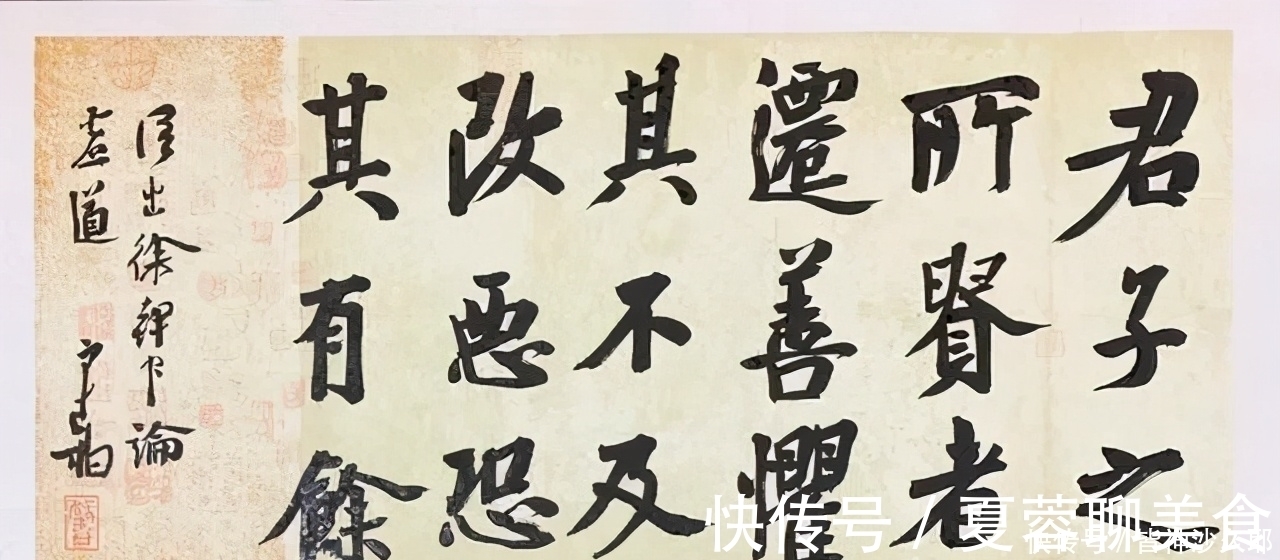 君子之
所賢者
遷善懼
其不及
改惡恐
其有餘
語出徐幹中論
虛道
快传号 / 夏蓉聊美食
快传号